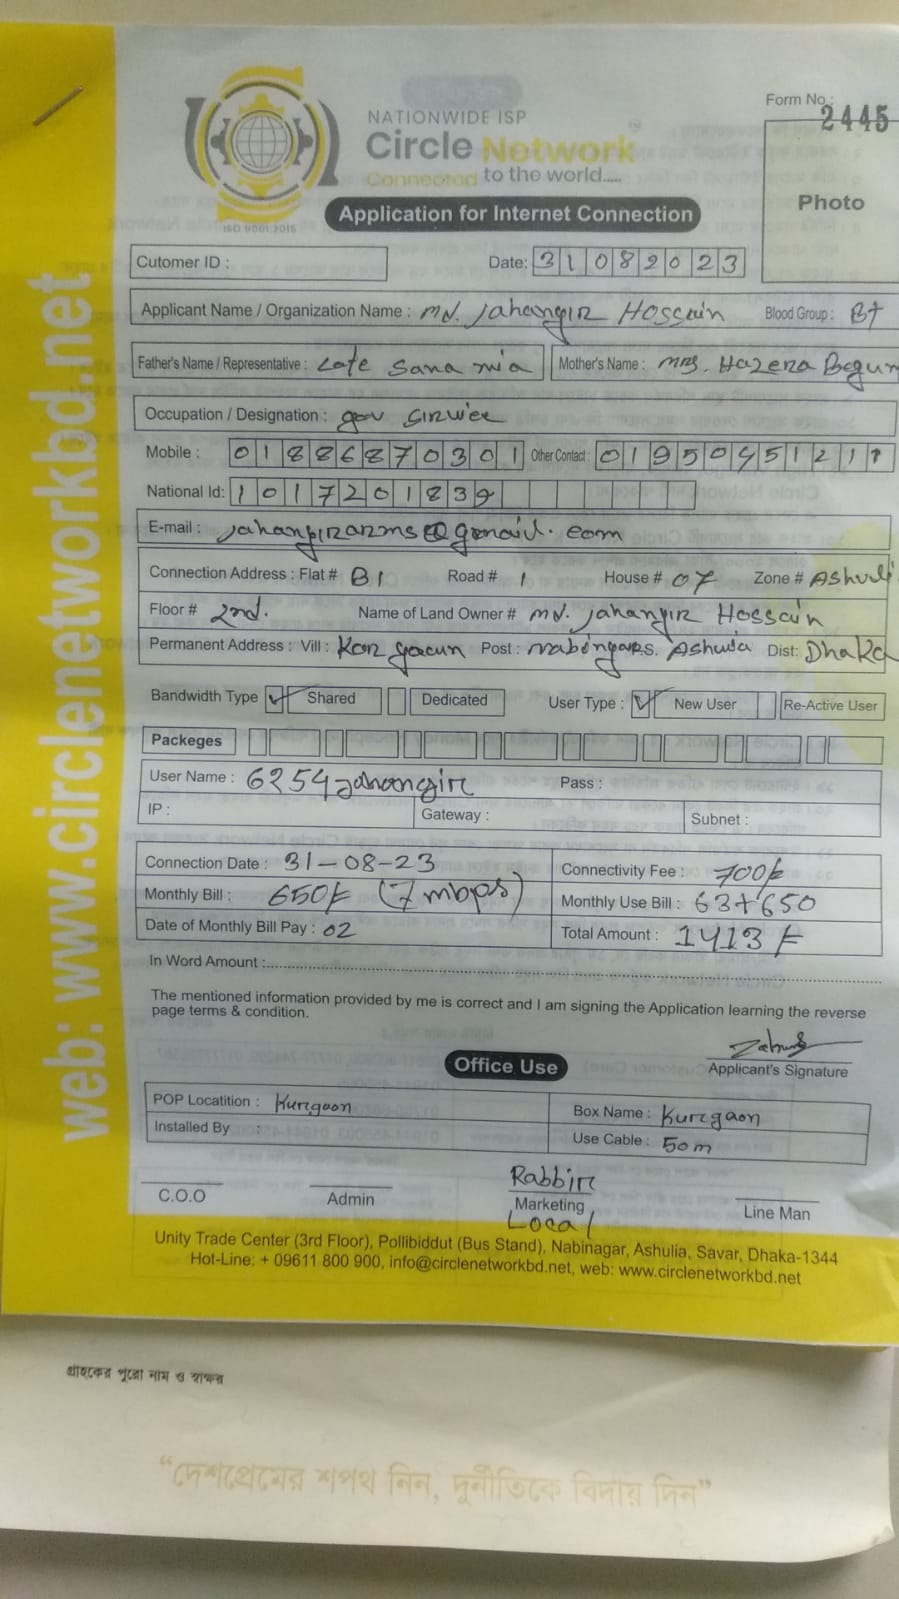 Form No.: 2445
NATIONWIDE ISP
Circle Network
Connected to the world.....
ISO 9001:2015
Photo
Application for Internet Connection
Cutomer ID :
Date: 31082023
Applicant Name / Organization Name : md. Jahangir Hossain Blood Group : B+
Father's Name / Representative : Late Sana mia Mother's Name : mrs. Hazera Begum
Occupation / Designation : gov
Mobile : 01886870301 Other Contact : 01950451211
National Id: 1017201839
E-mail :
Connection Address : Flat # B1 Road # 1 House # 07 Zone # Ashuli
Floor # 2nd. Name of Land Owner # md. Jahangir Hossain
Permanent Address : Vill : Post : Dist: Dhaka
Bandwidth Type Shared Dedicated User Type : New User Re-Active User
Packeges
User Name : 6254jahangir Pass :
IP : Gateway : Subnet :
Connection Date : 31-08-23 Connectivity Fee : 700/-
Monthly Bill : 650/- (7 mbps) Monthly Use Bill : 63+650
Date of Monthly Bill Pay : 02 Total Amount : 1413/-
In Word Amount :
The mentioned information provided by me is correct and I am signing the Application learning the reverse
page terms & condition.
Applicant's Signature
Office Use
POP Locatition : Kurgaon Box Name : Kurgaon
Installed By : Use Cable : 50m
Rabbir
C.O.O Admin Marketing Line Man
Local
Unity Trade Center (3rd Floor), Pollibiddut (Bus Stand), Nabinagar, Ashulia, Savar, Dhaka-1344
Hot-Line: + 09611 800 900, info@circlenetworkbd.net, web: www.circlenetworkbd.net
web: www.circlenetworkbd.net
গ্রাহকের পুরো নাম ও স্বাক্ষর
“দেশপ্রেমের শপথ নিন, দুর্নীতিকে বিদায় দিন”